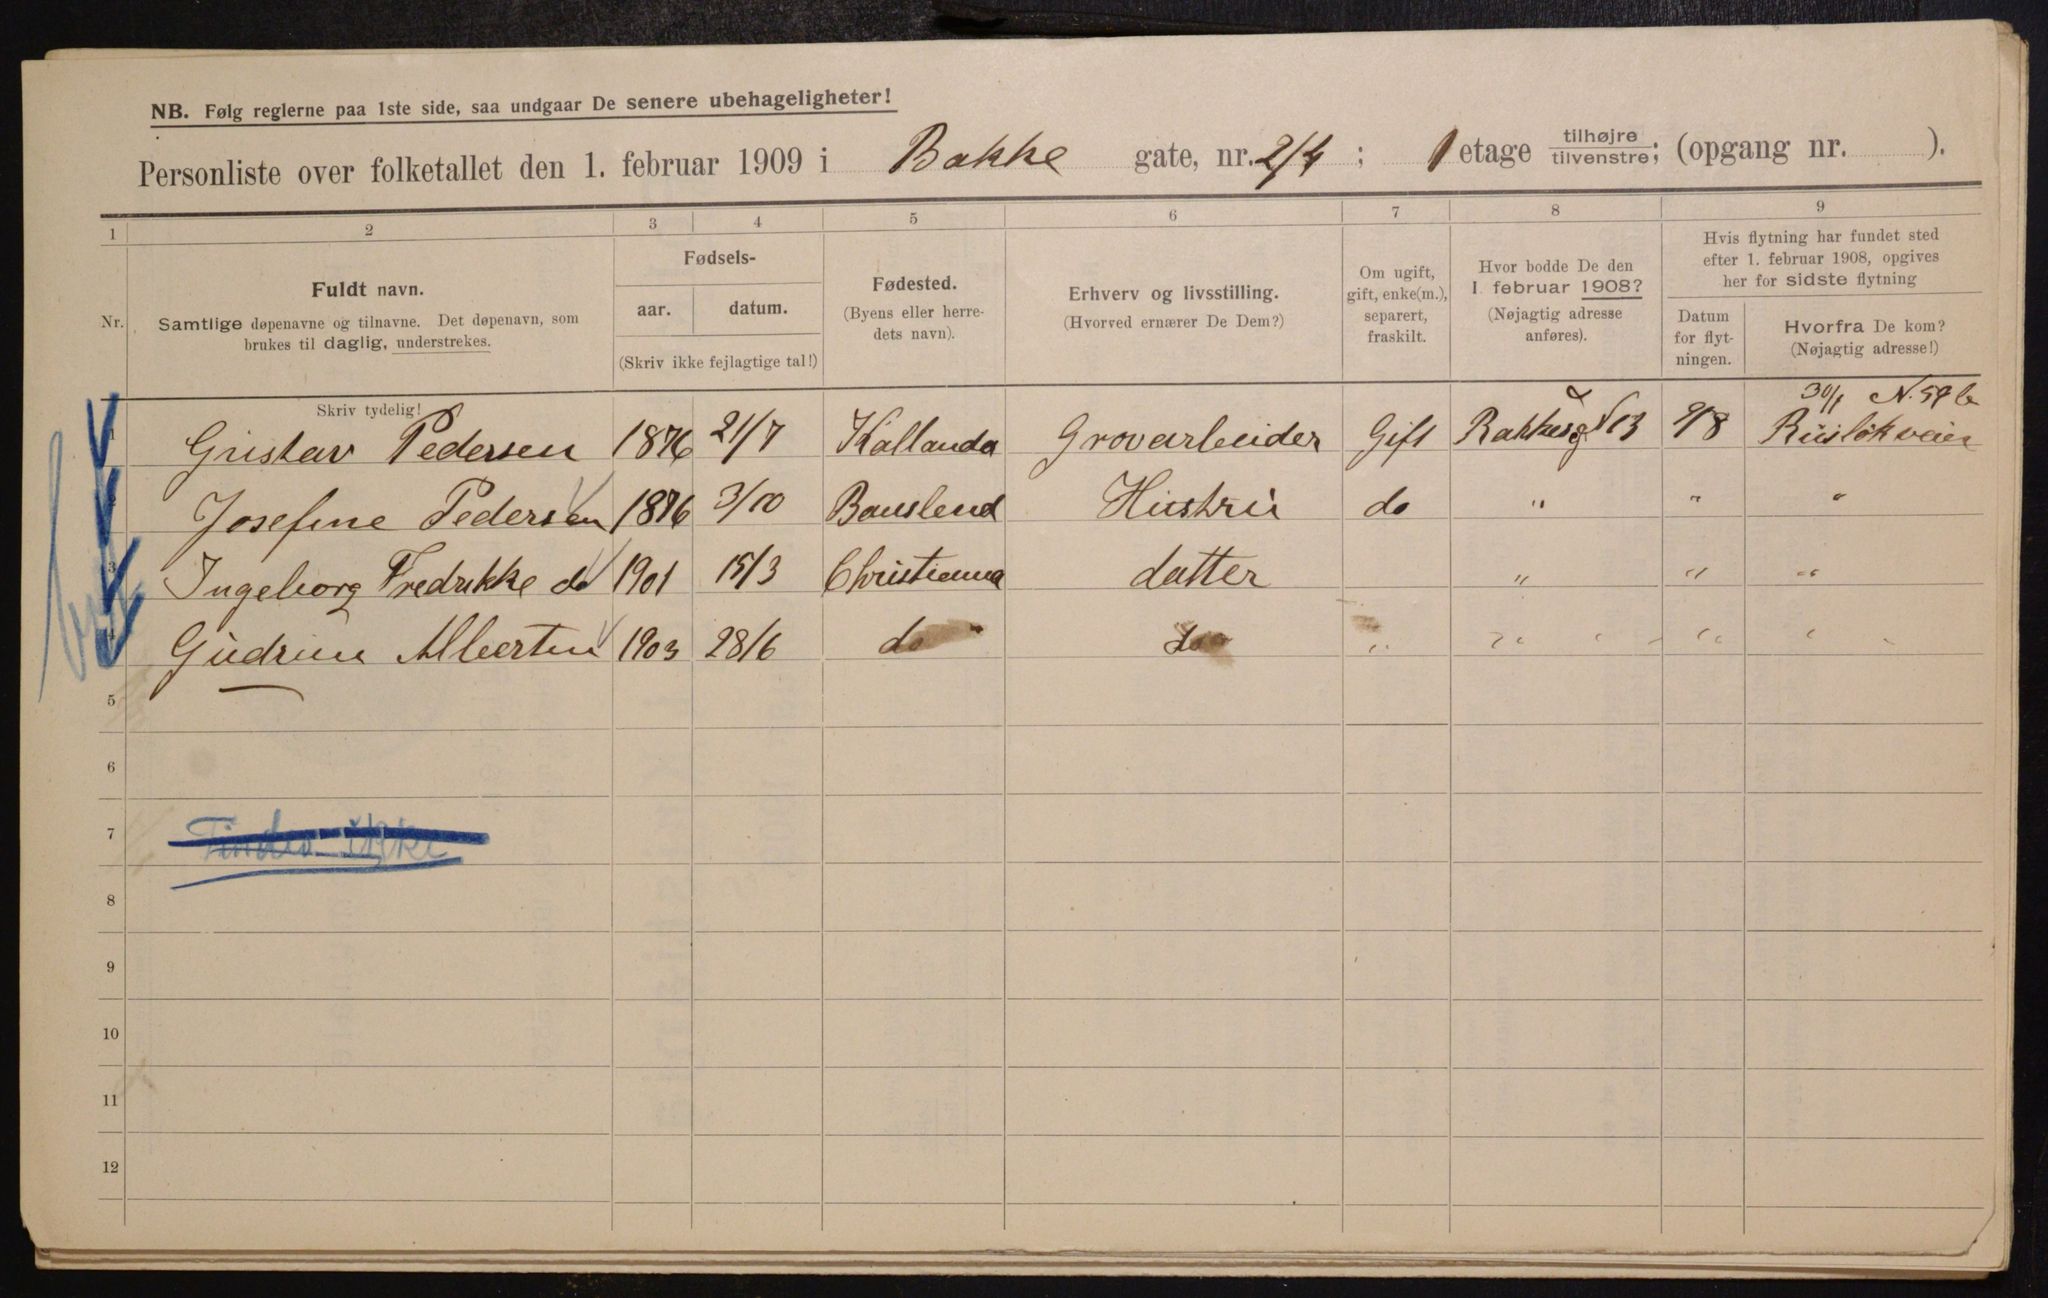 NB. Følg reglerne paa 1ste side, saa undgaar De senere ubehageligheter!
Personliste over folketallet den 1. februar 1909 i Bakke gate, nr. 2/4; 1 etage tilhøjre tilvenstre; (opgang nr. ).
1 2 3 4 5 6 7 8 9
Nr.
Fuldt navn.
Samtlige døpenavne og tilnavne. Det døpenavn, som
brukes til daglig, understrekes.
Skriv tydelig!
Fødsels-
aar. datum.
(Skriv ikke fejlagtige tal!)
Fødested.
(Byens eller herre-
dets navn).
Erhverv og livsstilling.
(Hvorved ernærer De Dem?)
Om ugift,
gift, enke(m.),
separert,
fraskilt.
Hvor bodde De den
1. februar 1908?
(Nøjagtig adresse
anføres).
Hvis flytning har fundet sted
efter 1. februar 1908, opgives
her for sidste flytning
Datum
for flyt-
ningen.
Hvorfra De kom?
(Nøjagtig adresse!)
30/1 N. 59 b
1 Gustav Pedersen 1876 21/7 Kallanda Grovarbeider Gift Bakkesg 13 9/8 Rüsløkveien
2 Josefine Pedersen 1876 3/10 Bauslend Hustrü do " " "
3 Ingeborg Fredrikke do 1901 15/3 Christianna datter " " "
4 Güdrün Albertin 1903 28/6 do do " " " "
5
6
7 Findes ikke
8
9
10
11
12